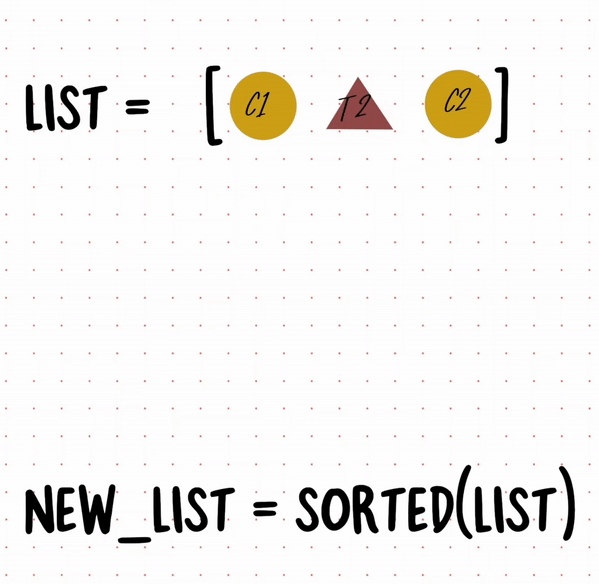 LIST = [ C1 T2 C2 ]
NEW_LIST = SORTED(LIST)